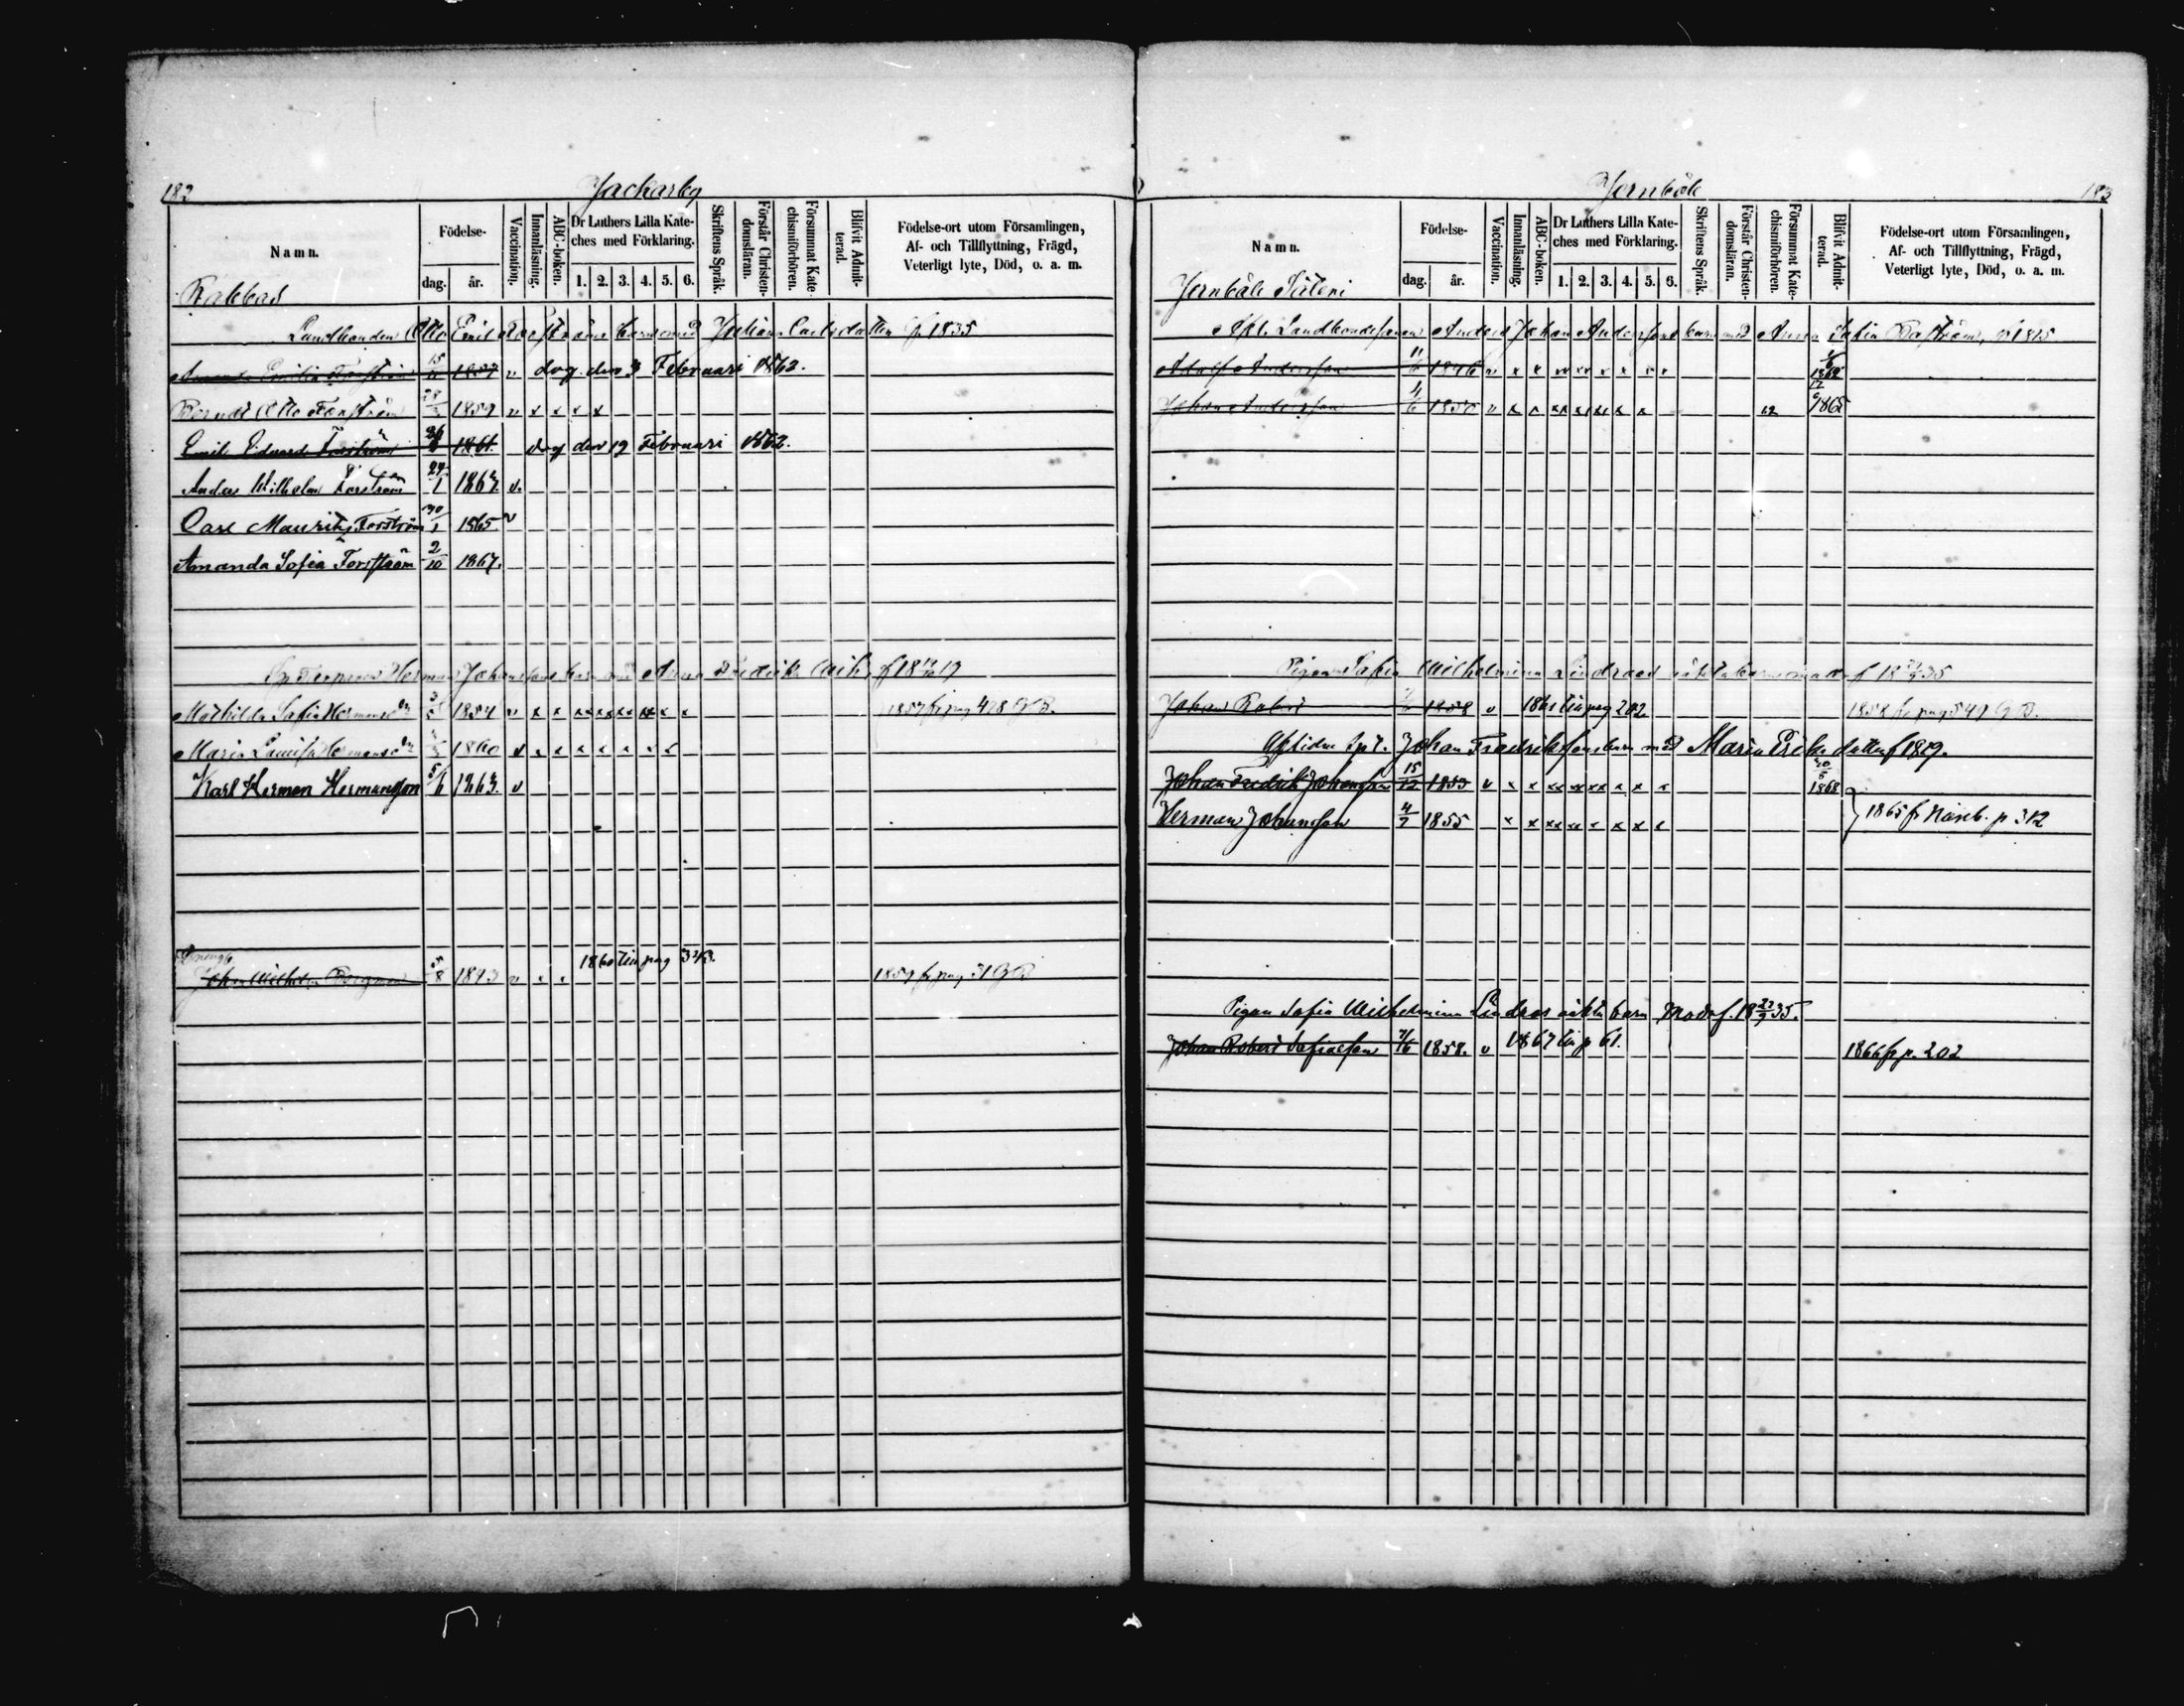 182
Jackarby
Namn.
Födelse-
dag.
år.
Vaccination.
Innanläsning.
ABC-boken.
Dr Luthers Lilla Kate-
ches med Förklaring.
1. 2. 3. 4. 5. 6.
Skriftens Språk.
Förstår Christen-
domsläran.
Försummat Kate-
chismiförhören.
Blifvit Admit-
terad.
Födelse-ort utom Församlingen,
Af- och Tillflyttning, Frägd,
Veterligt lyte, Död, o. a. m.
Rabbas
Landbonden Otto Emil Forströms barn med Juliana Carlsdotter f. 1835
Amanda Emilia Forström 15/ 1857 v dog den 3 Februari 1862.
Berndt Otto Forström 28/ 1859 v x x x x
Emil Edvard Forström 26/ 1861. dog den 19 Februari 1862.
Anders Wilhelm Forström 24/1 1863. v.
Carl Mauritz Forström 30/1 1865. v
Amanda Sofia Forström 2/10 1867.
Herman Johanssons barn med Anna Fredrika f 18 19
Mathilda Sofia Hermansdr 3/ 1854 v x x xx xx xx xx x x 1857 fr pag 418 GB.
Maria Lovisa Hermansdr 1860 v x x x x x x x x
Karl Herman Hermansson 5/6 1863. v
Johan Wilhelm Bergman 5/8 1843 v x x 1860 till pag 323. 1859 fr pag 31 GB
Jernböle
183
Namn.
Födelse-
dag.
år.
Vaccination.
Innanläsning.
ABC-boken.
Dr Luthers Lilla Kate-
ches med Förklaring.
1. 2. 3. 4. 5. 6.
Skriftens Språk.
Förstår Christen-
domsläran.
Försummat Kate-
chismiförhören.
Blifvit Admit-
terad.
Födelse-ort utom Församlingen,
Af- och Tillflyttning, Frägd,
Veterligt lyte, Död, o. a. m.
Jernböle Säteri
Landbondesonen Anders Johan Anderssons barn med Anna Sofia f 1815
Adolf Andersson 11/ 1846 v x x xx xx x x x x
Johan Andersson 4/6 1850 v x x xx xx xx x x 1865
Pigan Sofia Wilhelmina Lindroos oäkta barn f 18 35
Johan Robert 7/6 1858 v 1861 till pag 202. 1858 fr pag 549 GB.
Aflidne Johan Fredrikssons barn med Maria Ersdotter f 1819.
Johan Fredrik Johansson 15/12 1853 v x x xx xx xx x x x 1868
Herman Johansson 4/7 1855 x x xx xx x x x x } 1865 fr p 312
Pigan Sofia Wilhelmina Lindros oäkta barn Mod. f. 18 22/9 35.
Johan Robert Sofiasson 7/6 1858. v 1867 till p 61. 1866 fr p. 202